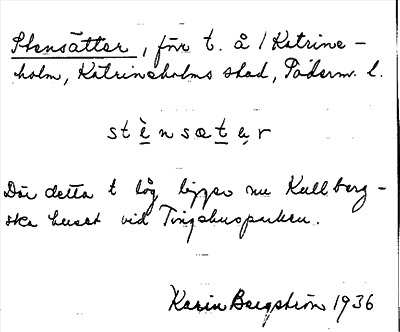 Stensätter, förr t. å / Katrine-
holm, Katrineholms stad, Söderm. l.
stè̱nsæṯạr
Där detta t låg ligger nu Kullberg-
ska huset vid Tingshusparken.
Karin Bergström 1936